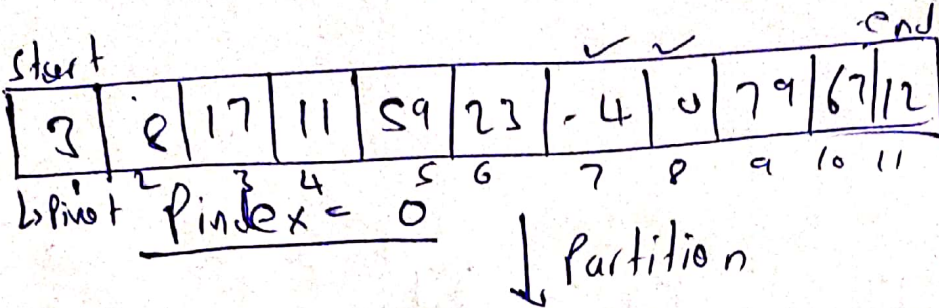 Start end
3 8 17 11 59 23 -4 0 79 67 12
1 2 3 4 5 6 7 8 9 10 11
↳Pivot Pindex = 0
↓ Partition